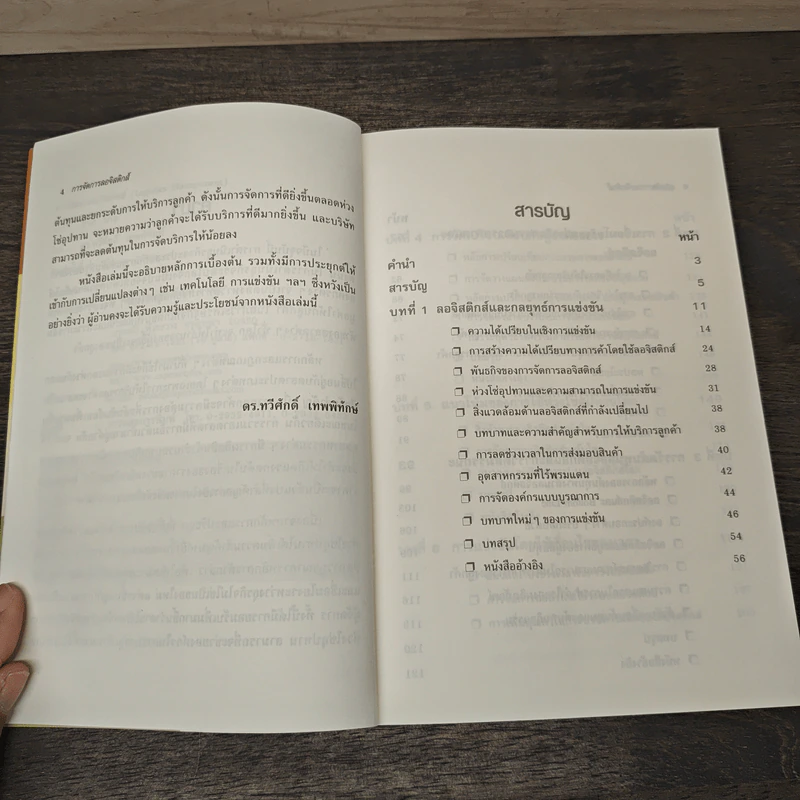 4 การจัดการลอจิสติกส์
ต้นทุนและยกระดับการให้บริการลูกค้า ดังนั้นการจัดการที่ดียิ่งขึ้นตลอดห่วง
โซ่อุปทาน จะหมายความว่าลูกค้าจะได้รับบริการที่ดีมากยิ่งขึ้น และบริษัท
สามารถที่จะลดต้นทุนในการจัดบริการให้น้อยลง
หนังสือเล่มนี้จะอธิบายหลักการเบื้องต้น รวมทั้งมีการประยุกต์ให้
เข้ากับการเปลี่ยนแปลงต่างๆ เช่น เทคโนโลยี การแข่งขัน ฯลฯ ซึ่งหวังเป็น
อย่างยิ่งว่า ผู้อ่านคงจะได้รับความรู้และประโยชน์จากหนังสือเล่มนี้
ดร.ทวีศักดิ์ เทพพิทักษ์
สารบัญ
หน้า
คำนำ 3
สารบัญ 5
บทที่ 1 ลอจิสติกส์และกลยุทธ์การแข่งขัน 11
❐ ความได้เปรียบในเชิงการแข่งขัน 14
❐ การสร้างความได้เปรียบทางการค้าโดยใช้ลอจิสติกส์ 24
❐ พันธกิจของการจัดการลอจิสติกส์ 28
❐ ห่วงโซ่อุปทานและความสามารถในการแข่งขัน 31
❐ สิ่งแวดล้อมด้านลอจิสติกส์ที่กำลังเปลี่ยนไป 38
❐ บทบาทและความสำคัญสำหรับการให้บริการลูกค้า 38
❐ การลดช่วงเวลาในการส่งมอบสินค้า 40
❐ อุตสาหกรรมที่ไร้พรมแดน 42
❐ การจัดองค์กรแบบบูรณาการ 44
❐ บทบาทใหม่ๆ ของการแข่งขัน 46
❐ บทสรุป 54
❐ หนังสืออ้างอิง 56